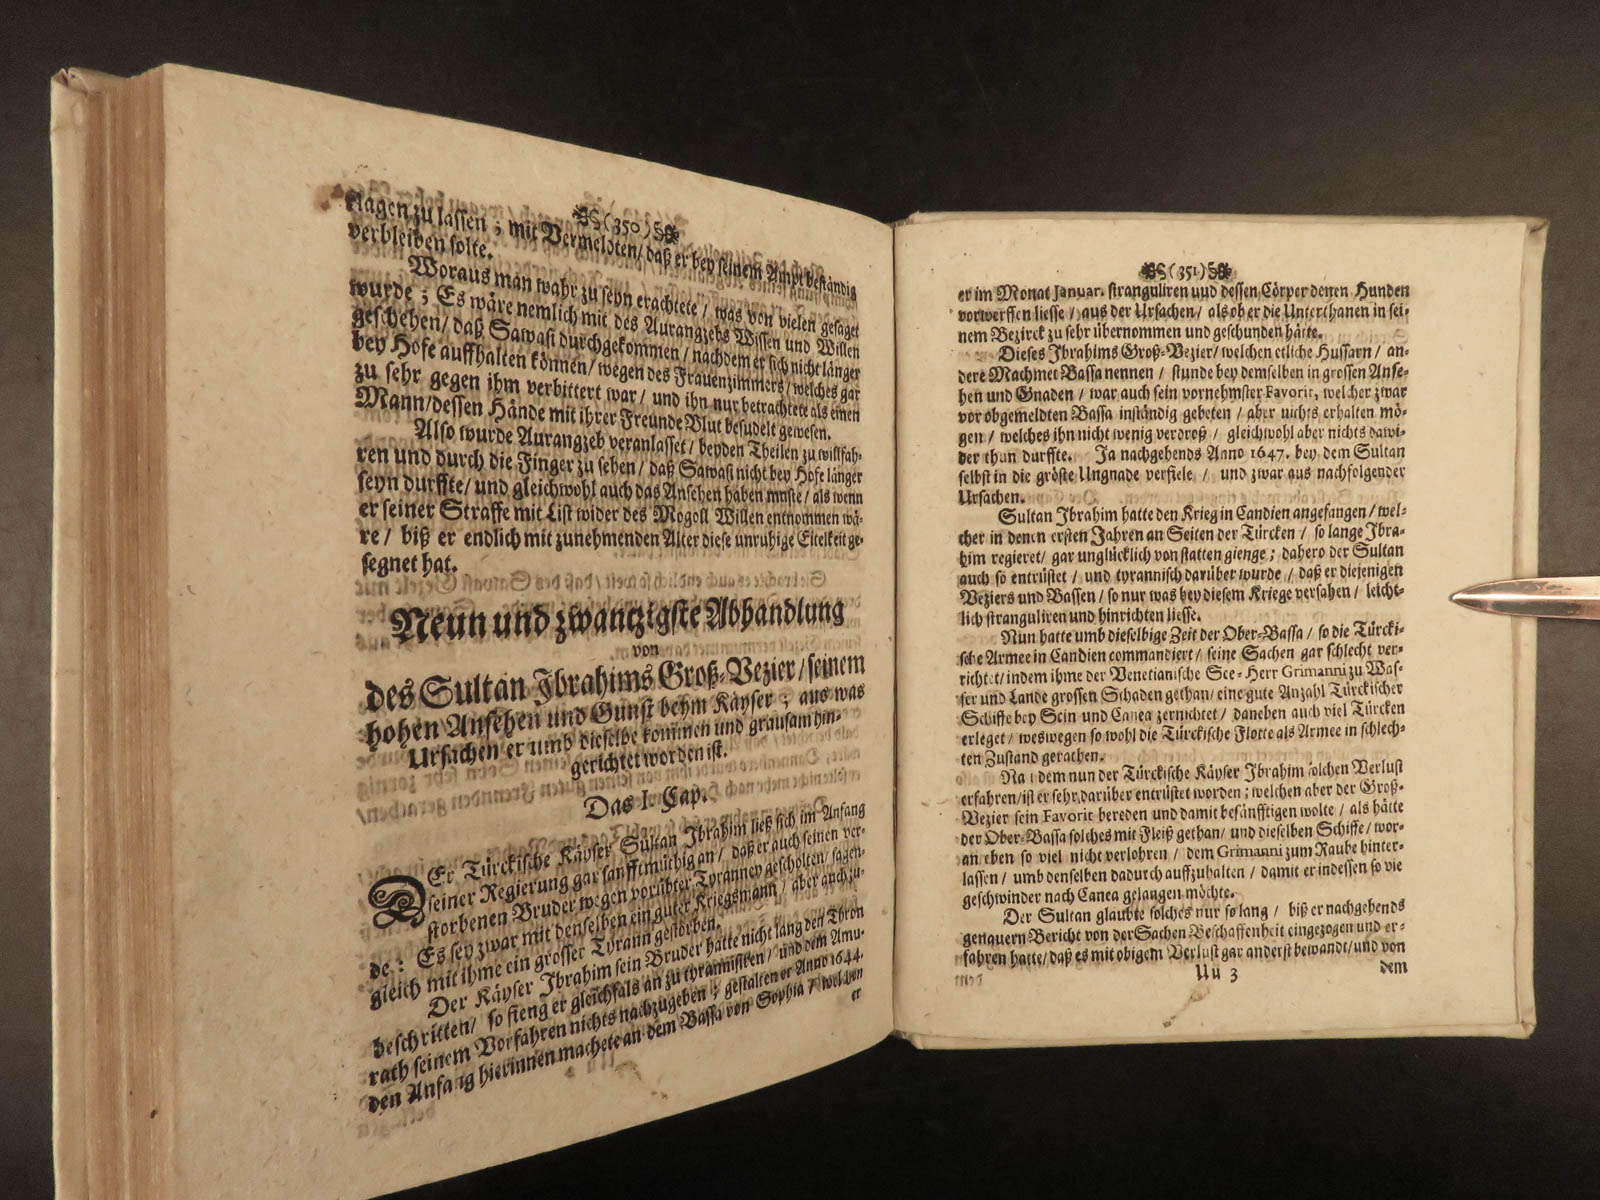 (350)
klagen zu lassen; mit Vermelden/ daß er bey seinem Ampt beständig
verbleiben solte.
Woraus man wahr zu seyn erachtete / was von vielen gesaget
wurde; Es wäre nemlich mit des Aurangzebs Wissen und Willen
geschehen/ daß Sawasi durchgekommen / nachdem er sich nicht länger
bey Hofe auffhalten können/ wegen des Frauenzimmers/ welches gar
zu sehr gegen ihm verbittert war / und ihn nur betrachtete als einen
Mann/dessen Hände mit ihrer Freunde Blut besudelt gewesen.
Also wurde Aurangzeb veranlasset/ beyden Theilen zu willfah-
ren und durch die Finger zu sehen/ daß Sawasi nicht bey Hofe länger
seyn durffte/ und gleichwohl auch das Ansehen haben muste/ als wenn
er seiner Straffe mit List wider des Mogoll Willen entnommen wä-
re/ biß er endlich mit zunehmenden Alter diese unruhige Eitelkeit ge-
segnet hat.
Neun und zwantzigste Abhandlung
von
des Sultan Ibrahims Groß-Vezier/ seinem
hohen Ansehen und Gunst beym Käyser; aus was
Ursachen er umb dieselbe kommen und grausam hin-
gerichtet worden ist.
Das I. Cap.
DEr Türckische Käyser Sultan Ibrahim ließ sich im Anfang
seiner Regierung gar sanfftmüthig an/ daß er auch seinen ver-
storbenen Bruder wegen vorübter Tyranney gescholten/ sagen-
de: Es sey zwar mit denselben ein guter Kriegsmann/ aber auch zu-
gleich mit ihme ein grosser Tyrann gestorben.
Der Käyser Ibrahim sein Bruder hatte nicht lang den Thron
beschritten/ so fieng er gleichfals an zu tyrannisiren/ und dem Amu-
rath seinem Vorfahren nichts nachzugeben; gestalten er Anno 1644.
den Anfang hierinnen machete an dem Bassa von Sophia / welchen
er
(351)
er im Monat Januar. stranguliren uud dessen Cörper denen Hunden
vorwerffen liesse / aus der Ursachen/ als ob er die Unterthanen in sei-
nem Bezirck zu sehr übernommen und geschunden hätte.
Dieses Ibrahims Groß-Vezier/ welchen etliche Hussarn / an-
dere Machmet Bassa nennen / stunde bey demselben in grossen Anse-
hen und Gnaden / war auch sein vornehmster Favorit, welcher zwar
vor obgemeldten Bassa inständig gebeten / aber nichts erhalten mö-
gen / welches ihn nicht wenig verdroß / gleichwohl aber nichts dawi-
der thun durffte. Ja nachgehends Anno 1647. bey dem Sultan
selbst in die gröste Ungnade verfiele / und zwar aus nachfolgender
Ursachen.
Sultan Ibrahim hatte den Krieg in Candien angefangen / wel-
cher in denen ersten Jahren an Seiten der Türcken / so lange Ibra-
him regieret/ gar unglücklich von statten gienge; dahero der Sultan
auch so entrüstet / und tyrannisch darüber wurde / daß er diejenigen
Veziers und Bassen / so nur was bey diesem Kriege versahen / leicht-
lich stranguliren und hinrichten liesse.
Nun hatte umb dieselbige Zeit der Ober-Bassa / so die Türcki-
sche Armee in Candien commandiert / seine Sachen gar schlecht ver-
richtet/ indem ihme der Venetianische See-Herr Grimanni zu Was-
ser und Lande grossen Schaden gethan/ eine gute Anzahl Türckischer
Schiffe bey Scin und Canea zernichtet / daneben auch viel Türcken
erleget / weswegen so wohl die Türckische Flotte als Armee in schlech-
ten Zustand gerathen.
Nachdem nun der Türckische Käyser Ibrahim solchen Verlust
erfahren/ist er sehr darüber entrüstet worden; welchen aber der Groß-
Vezier sein Favorit bereden und damit besänfftigen wolte / als hätte
der Ober-Bassa solches mit Fleiß gethan/ und dieselben Schiffe/ wor-
an eben so viel nicht verlohren / dem Grimanni zum Raube hinter-
lassen / umb denselben dadurch auffzuhalten / damit er indessen so vie
geschwinder nach Canea gelangen möchte.
Der Sultan glaubte solches nur so lang / biß er nachgehends
genauern Bericht von der Sachen Beschaffenheit eingezogen und er-
fahren hatte/ daß es mit obigem Verlust gar anderst bewandt/und von
Uu 3
dem